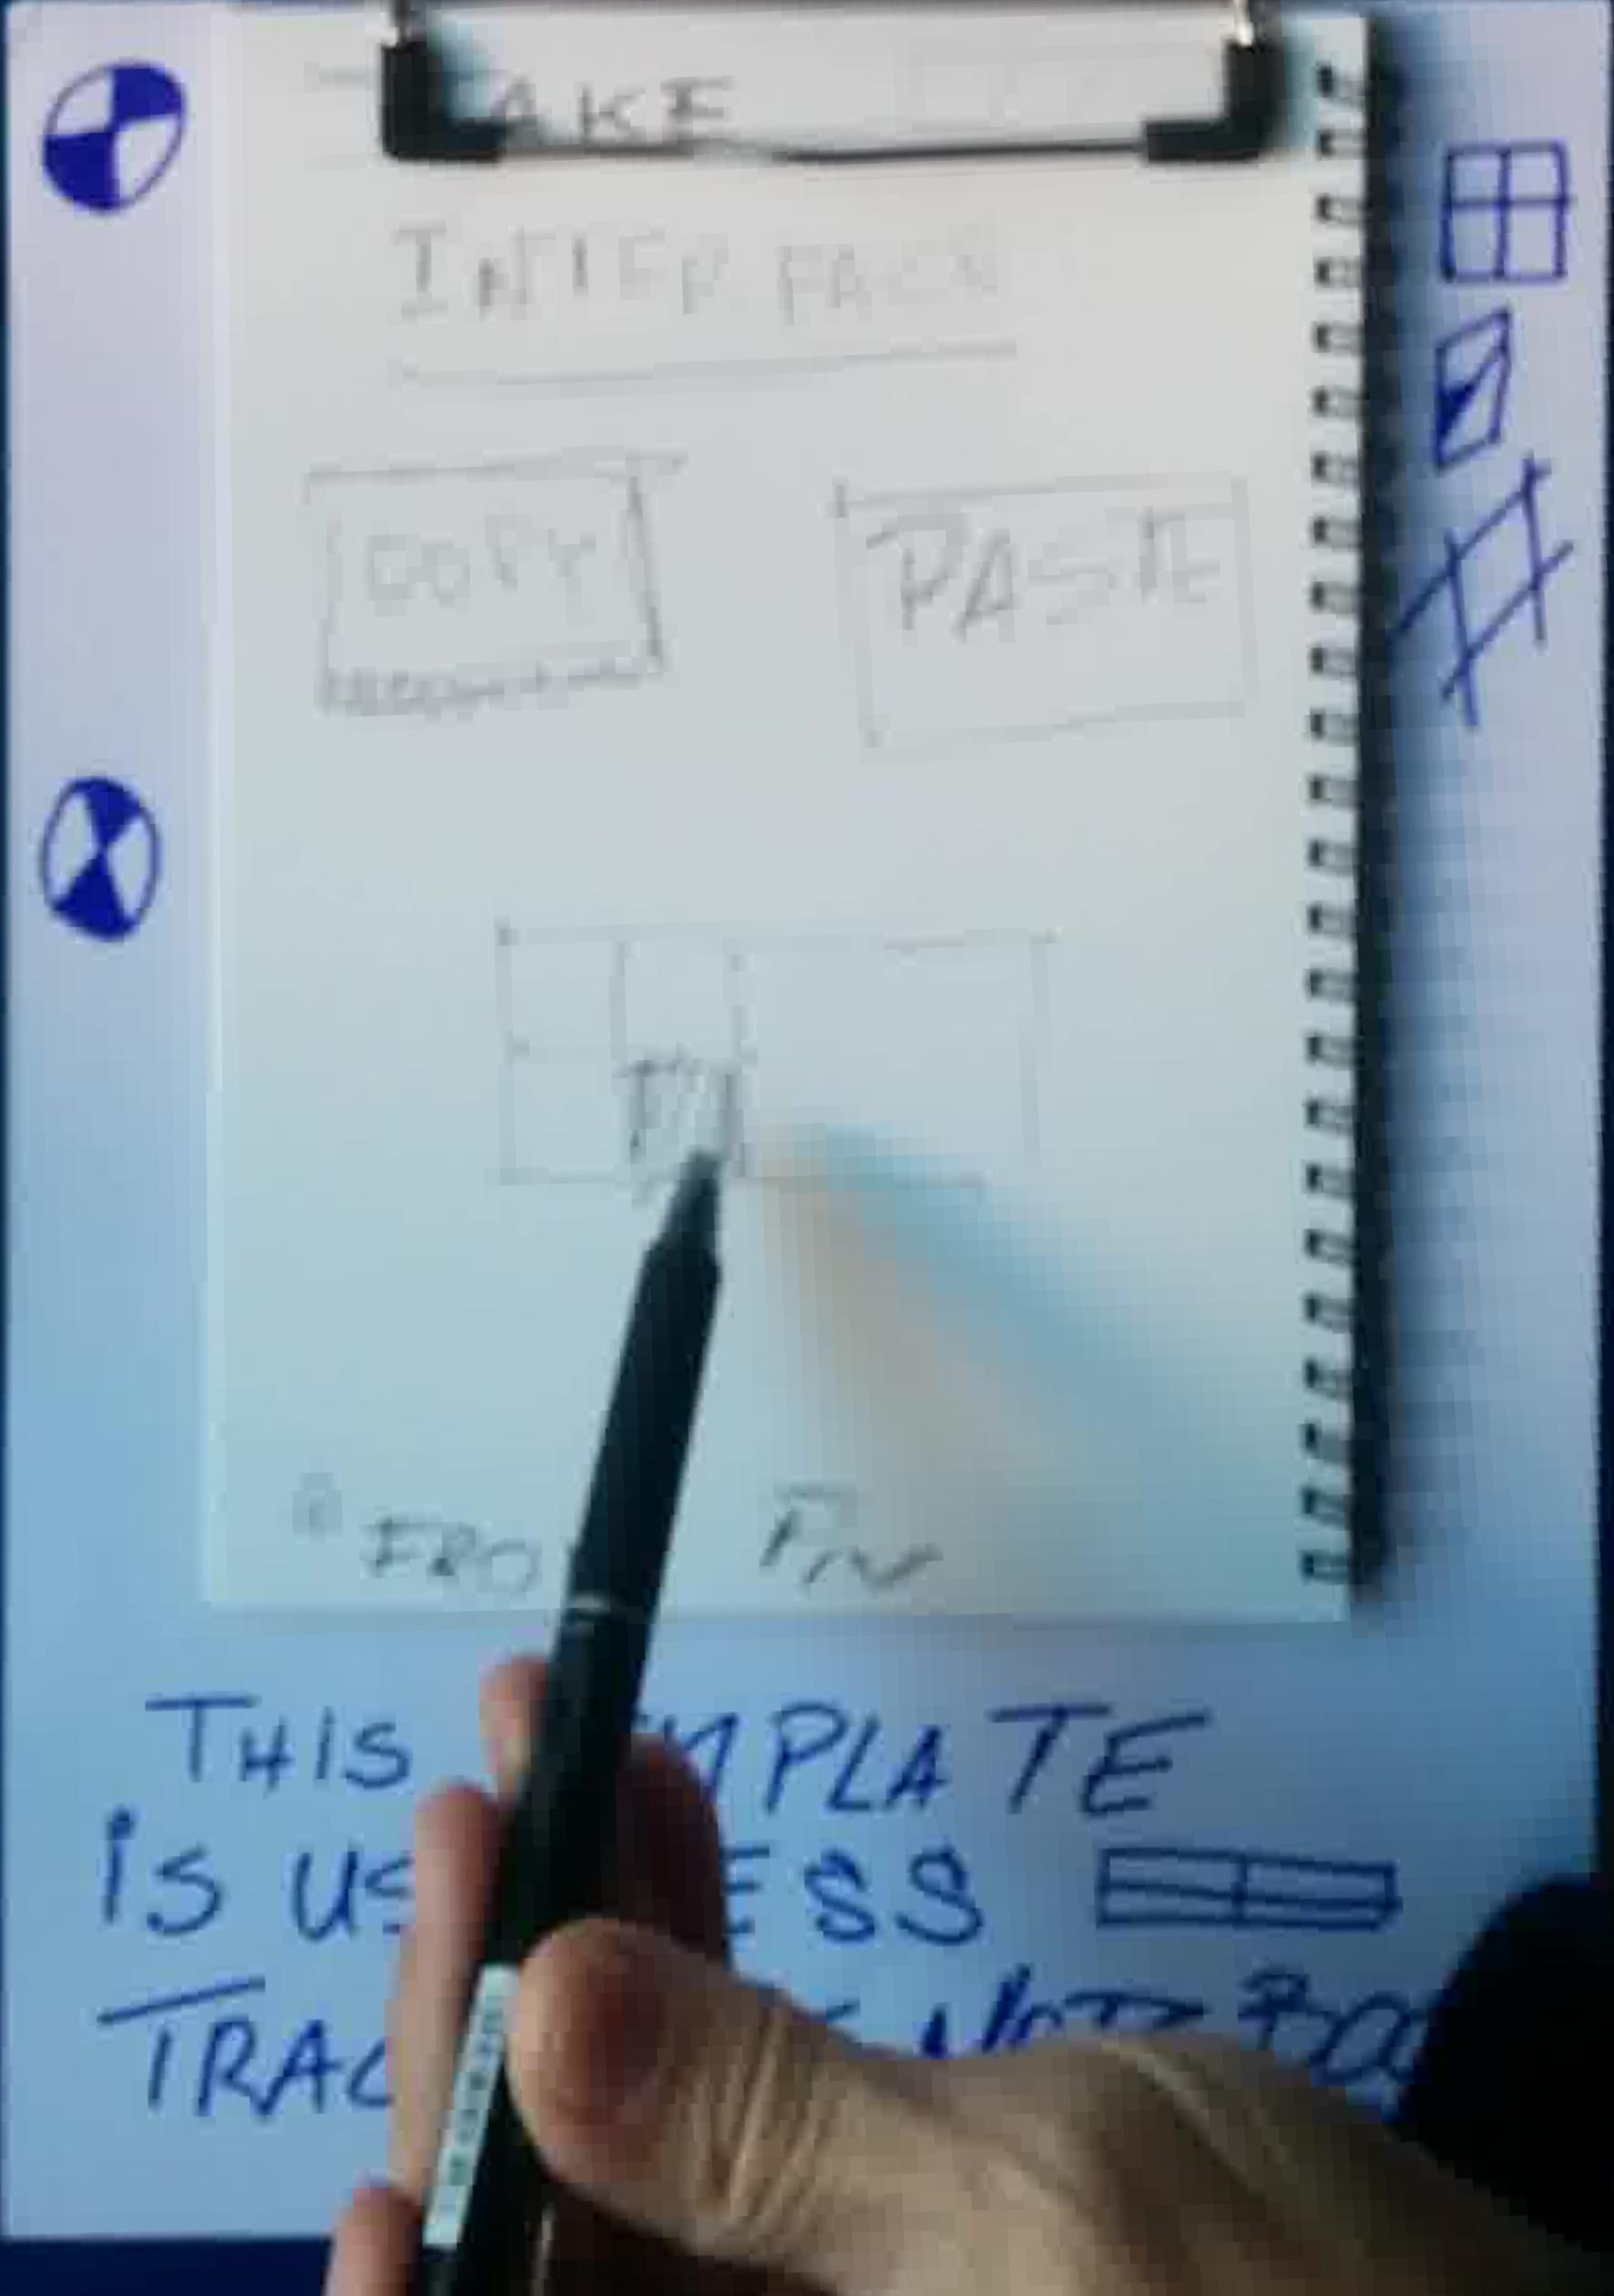 AKE
INTERFACE
COPY PASTE
PIN
THIS MPLATE
IS US ESS
TRAC NOT